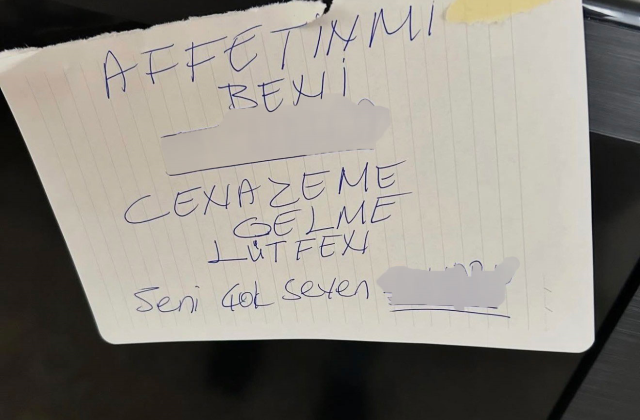 AFFETİNMİ
BENİ
CENAZEME
GELME
LÜTFEN
Seni çok seven